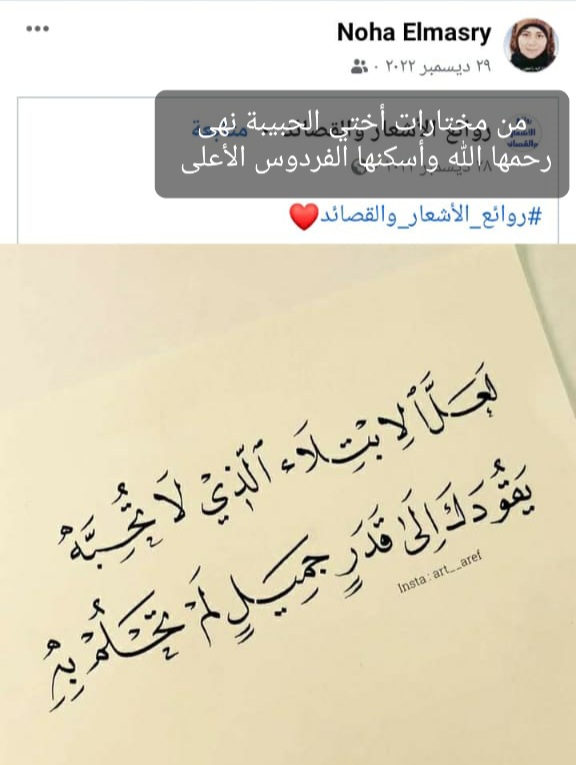 Noha Elmasry
٢٩ ديسمبر ٢٠٢٢
من مختارات أختي الحبيبة نهى
رحمها الله وأسكنها الفردوس الأعلى
روائع الأشعار والقصائد
متابعة
#روائع_الأشعار_والقصائد❤️
لَعَلَّ ٱلِابْتِلَاء ٱلَّذِيْ لَا تُحِبَّهُ
يَقُودَكَ إِلَىٰ قَدَرٍ جَمِيلٍ لَمْ تَحْلُمْ بِهِ
Insta : art__aref